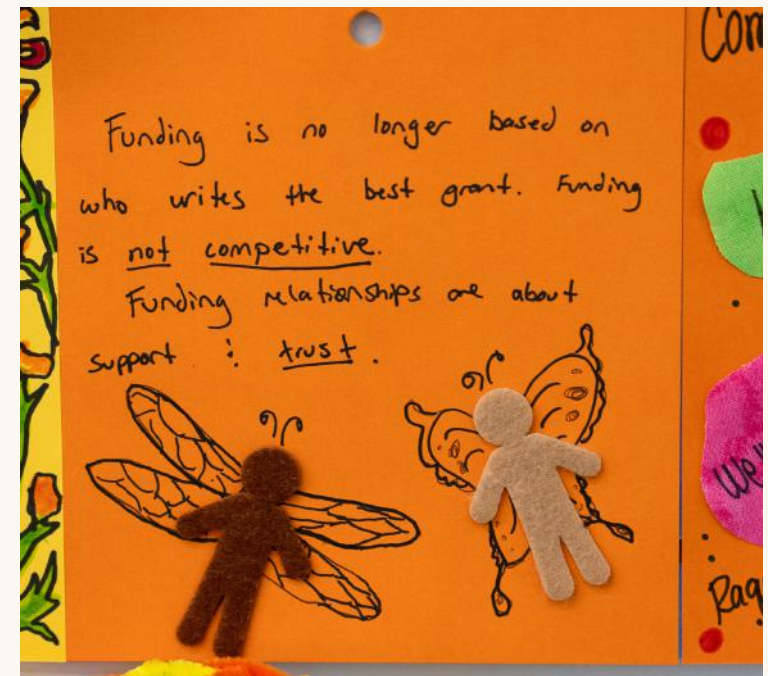 Funding is no longer based on
who writes the best grant. Funding
is not competitive.
Funding relationships are about
support : trust.
Com
We'
Rag